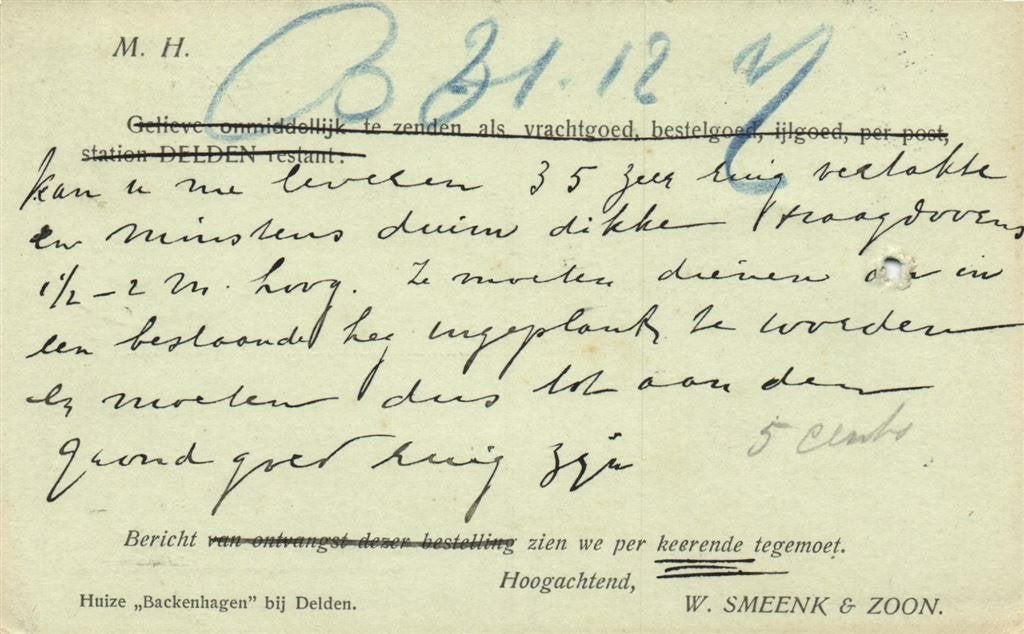 M. H.
B 21.12
Gelieve onmiddellijk te zenden als vrachtgoed, bestelgoed, ijlgoed, per post,
station DELDEN restant:
kan u me leveren 35 zeer ruig vertakte
en minstens duim dikke Haagdoorns
1½ - 2 M. hoog. Ze moeten dienen om in
een bestaande heg ingeplant te worden
en moeten dus tot aan den
grond goed ruig zijn
5 cents
Bericht van ontvangst dezer bestelling zien we per keerende tegemoet.
Hoogachtend,
Huize „Backenhagen" bij Delden.
W. SMEENK & ZOON.